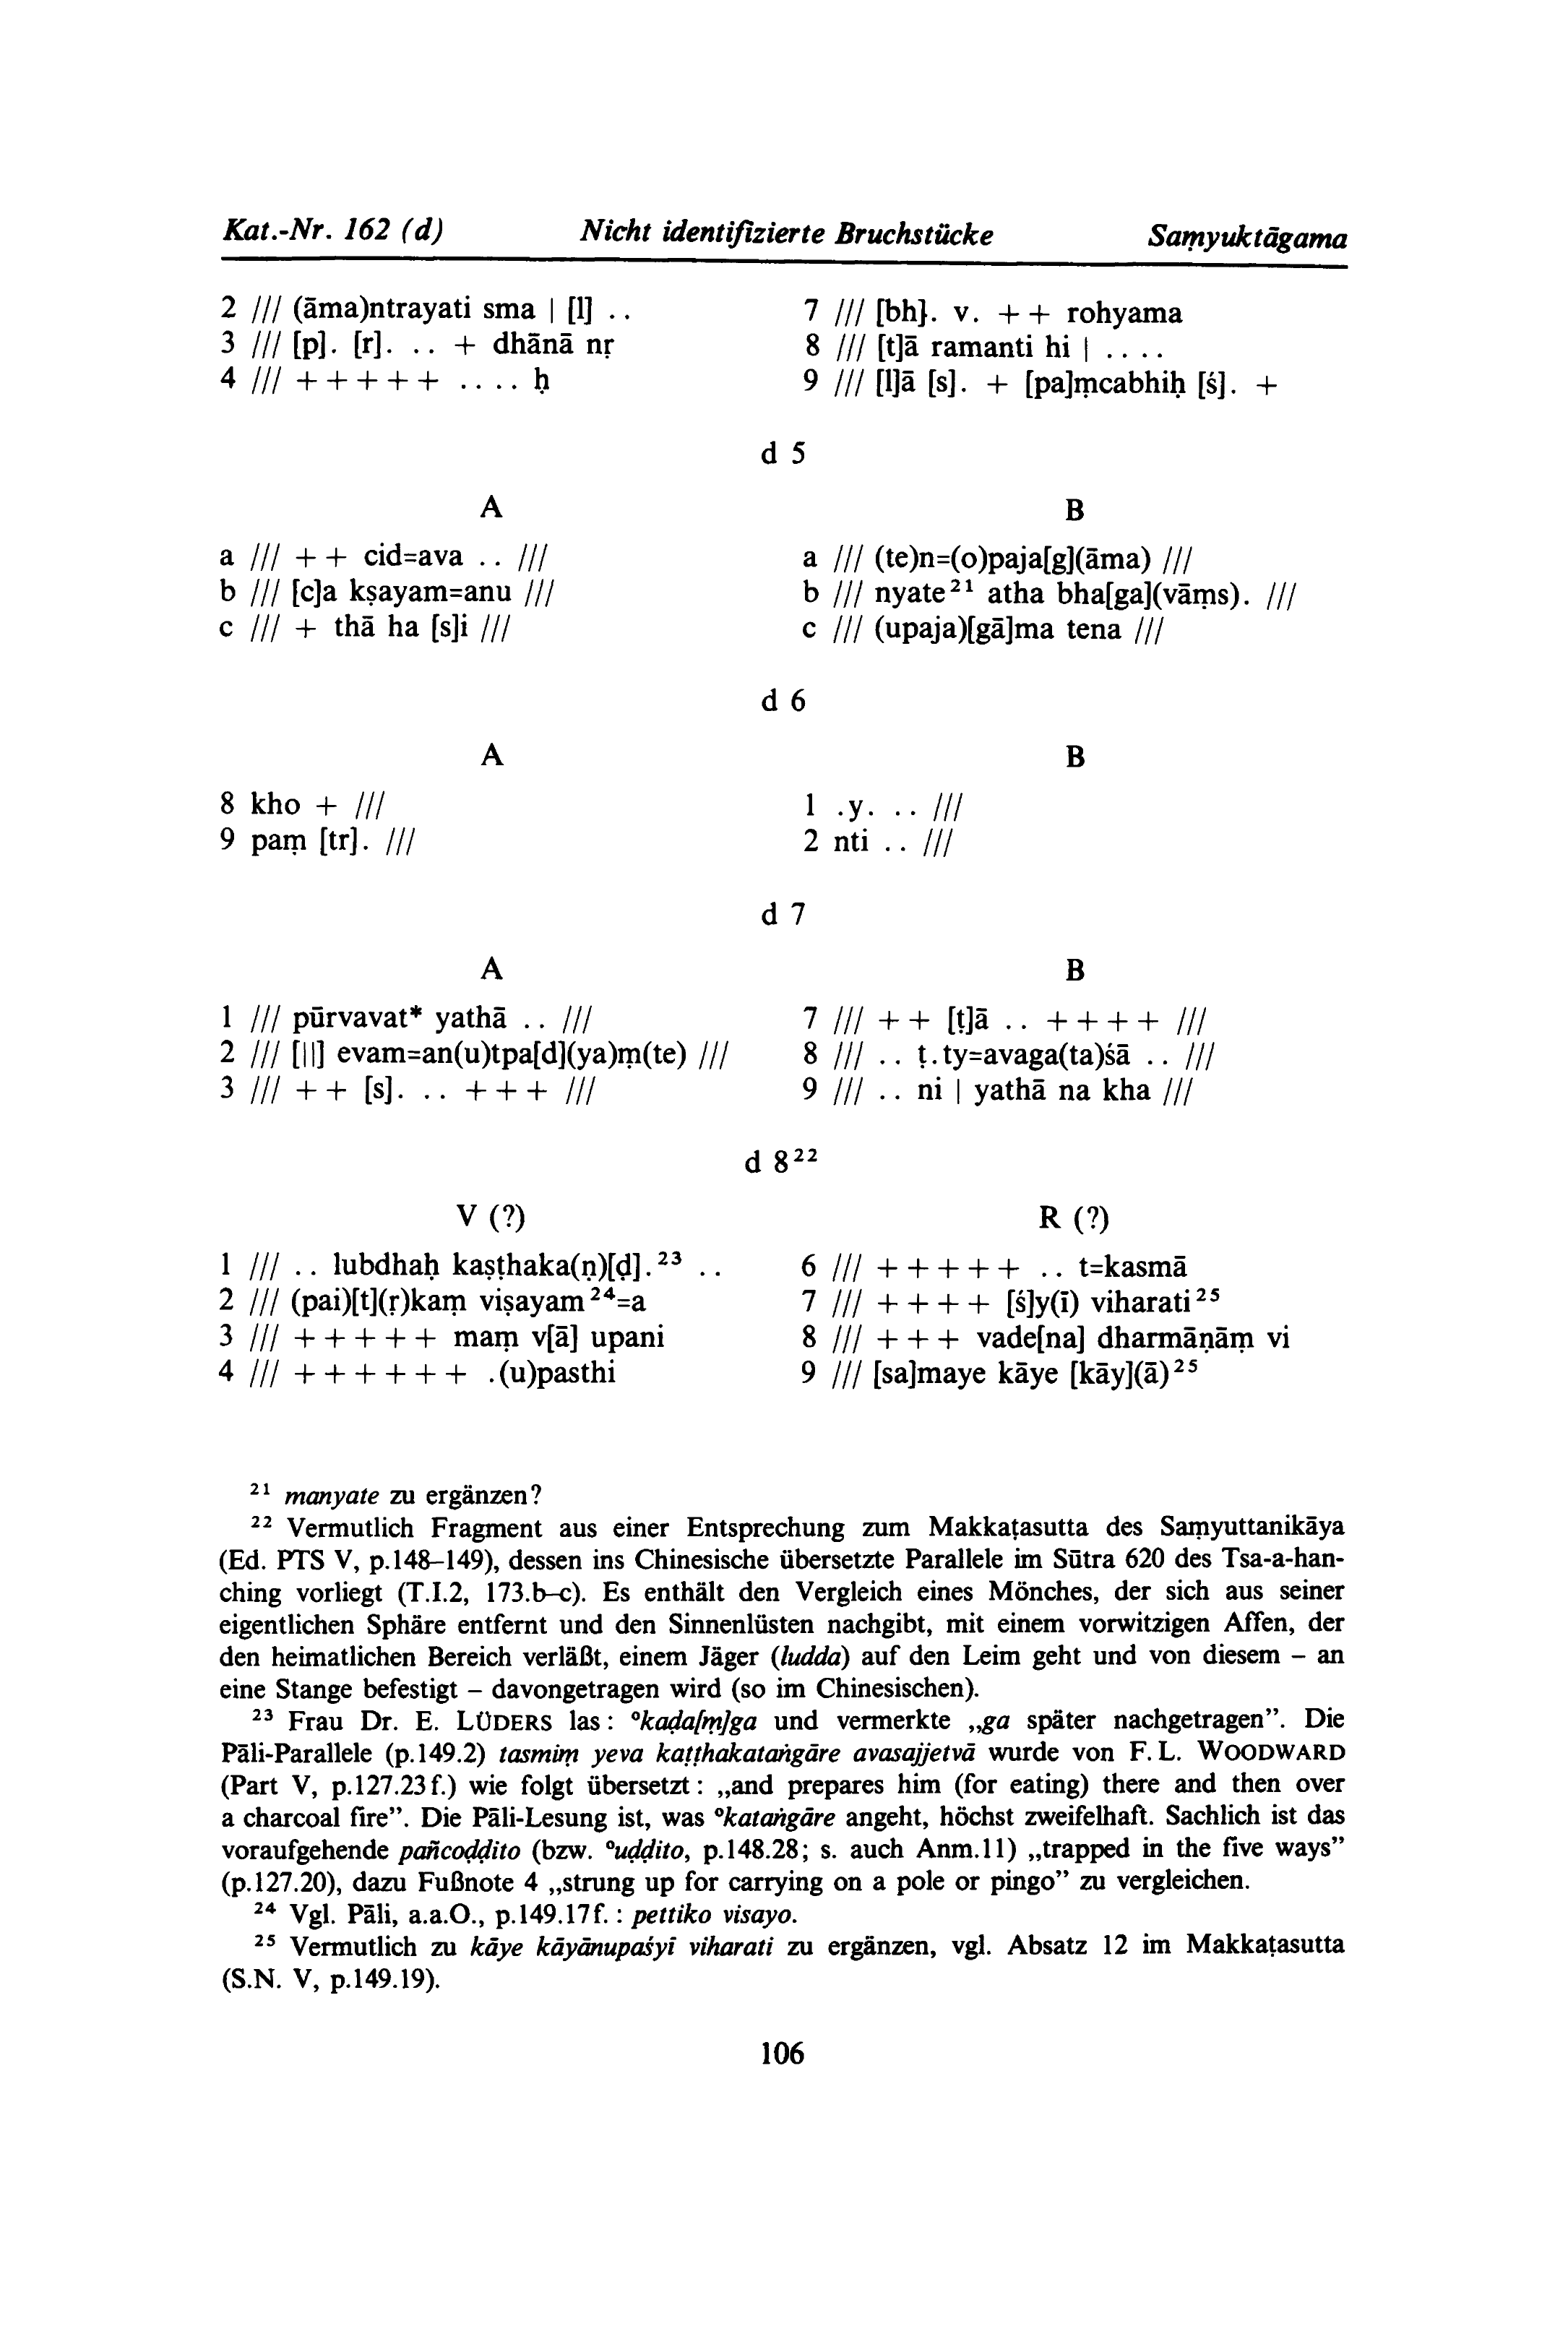 Kat.-Nr. 162 (d) Nicht identifizierte Bruchstücke Saṃyuktāgama
2 /// (āma)ntrayati sma | [l] ..
3 /// [p]. [r]. .. + dhānā nṛ
4 /// + + + + + .... ḥ
7 /// [bh]. v. + + rohyama
8 /// [t]ā ramanti hi | ....
9 /// [l]ā [s]. + [pa]ṃcabhiḥ [ś]. +
d 5
A
a /// + + cid=ava .. ///
b /// [c]a kṣayam=anu ///
c /// + thā ha [s]i ///
B
a /// (te)n=(o)paja[g](āma) ///
b /// nyate²¹ atha bha[ga](vāṃs). ///
c /// (upaja)[gā]ma tena ///
d 6
A
8 kho + ///
9 paṃ [tr]. ///
B
1 .y. .. ///
2 nti .. ///
d 7
A
1 /// pūrvavat* yathā .. ///
2 /// [||] evam=an(u)tpa[d](ya)ṃ(te) ///
3 /// + + [s]. .. + + + ///
B
7 /// + + [ṭ]ā .. + + + + ///
8 /// .. ṭ.ty=avaga(ta)śā .. ///
9 /// .. ni | yathā na kha ///
d 8²²
V (?)
1 /// .. lubdhaḥ kaṣṭhaka(ṇ)[ḍ].²³ ..
2 /// (pai)[t](ṛ)kaṃ viṣayam²⁴=a
3 /// + + + + + maṃ v[ā] upani
4 /// + + + + + + .(u)pasthi
R (?)
6 /// + + + + + .. t=kasmā
7 /// + + + + [ś]y(ī) viharati²⁵
8 /// + + + vade[na] dharmāṇāṃ vi
9 /// [sa]maye kāye [kāy](ā)²⁵
²¹ manyate zu ergänzen?
²² Vermutlich Fragment aus einer Entsprechung zum Makkaṭasutta des Saṃyuttanikāya
(Ed. PTS V, p.148–149), dessen ins Chinesische übersetzte Parallele im Sūtra 620 des Tsa-a-han-
ching vorliegt (T.I.2, 173.b–c). Es enthält den Vergleich eines Mönches, der sich aus seiner
eigentlichen Sphäre entfernt und den Sinnenlüsten nachgibt, mit einem vorwitzigen Affen, der
den heimatlichen Bereich verläßt, einem Jäger (ludda) auf den Leim geht und von diesem – an
eine Stange befestigt – davongetragen wird (so im Chinesischen).
²³ Frau Dr. E. LÜDERS las: °kaḍa[ṃ]ga und vermerkte „ga später nachgetragen”. Die
Pāli-Parallele (p.149.2) tasmiṃ yeva kaṭṭhakataṅgāre avasajjetvā wurde von F. L. WOODWARD
(Part V, p.127.23 f.) wie folgt übersetzt: „and prepares him (for eating) there and then over
a charcoal fire”. Die Pāli-Lesung ist, was °kataṅgāre angeht, höchst zweifelhaft. Sachlich ist das
voraufgehende pañcoḍḍito (bzw. °uḍḍito, p.148.28; s. auch Anm.11) „trapped in the five ways”
(p.127.20), dazu Fußnote 4 „strung up for carrying on a pole or pingo” zu vergleichen.
²⁴ Vgl. Pāli, a.a.O., p.149.17 f.: pettiko visayo.
²⁵ Vermutlich zu kāye kāyānupaśyī viharati zu ergänzen, vgl. Absatz 12 im Makkaṭasutta
(S.N. V, p.149.19).
106